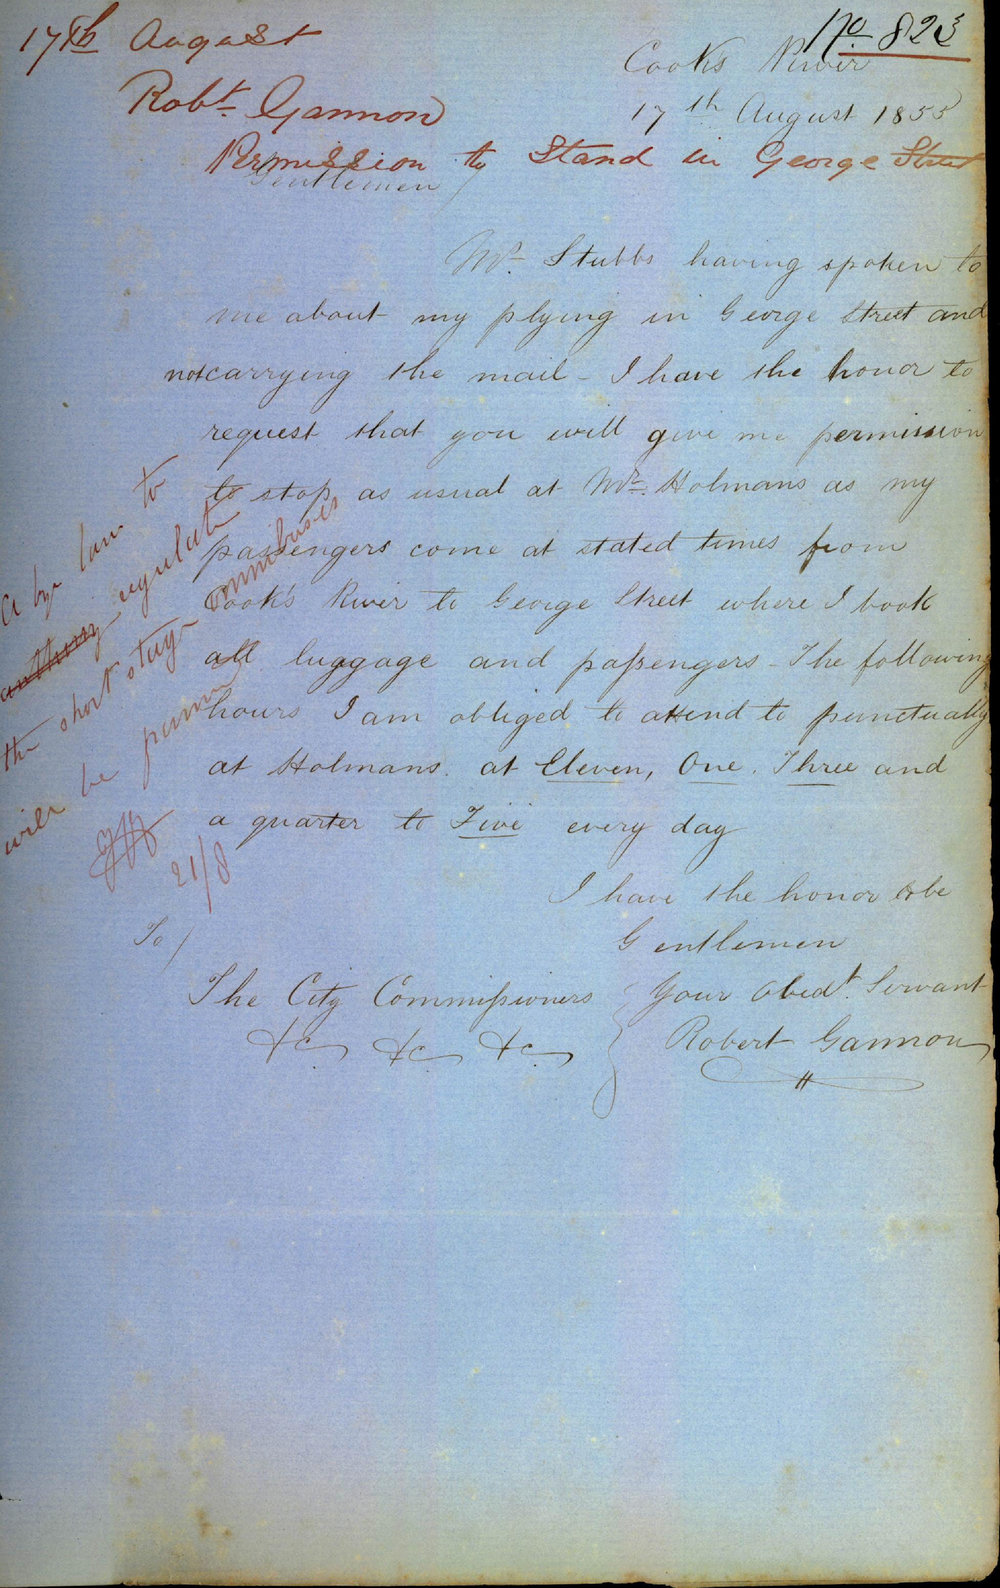 No. 823
17th August
Robt. Gannon
Permission to Stand in George Street
Cooks River
17th August 1855
Gentlemen
Mr. Stubbs having spoken to
me about my plying in George Street and
not carrying the mail - I have the honor to
request that you will give me permission
to stop as usual at Mr. Holmans as my
passengers come at stated times from
Cook's River to George Street where I book
all luggage and passengers - The following
hours I am obliged to attend to punctually
at Holmans. at Eleven, One, Three and
a quarter to Five every day
I have the honor to be
Gentlemen
Your Obedt. Servant
Robert Gannon
To/
The City Commissioners
&c &c &c
A bye law to
regulate
the short stage omnibuses
will be
21/8